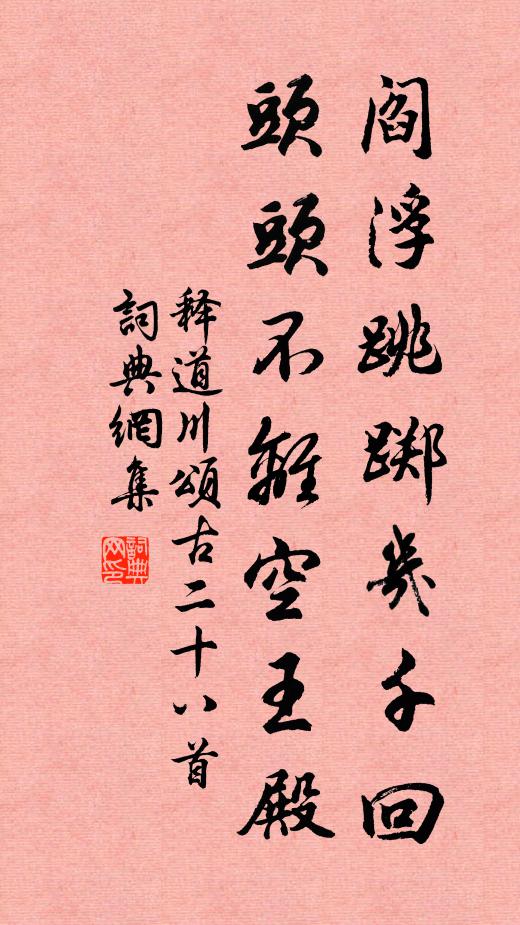 閻浮跳踯幾千回
頭頭不離空王殿
释道川頌古二十八首
詞典網集
詞典
网印